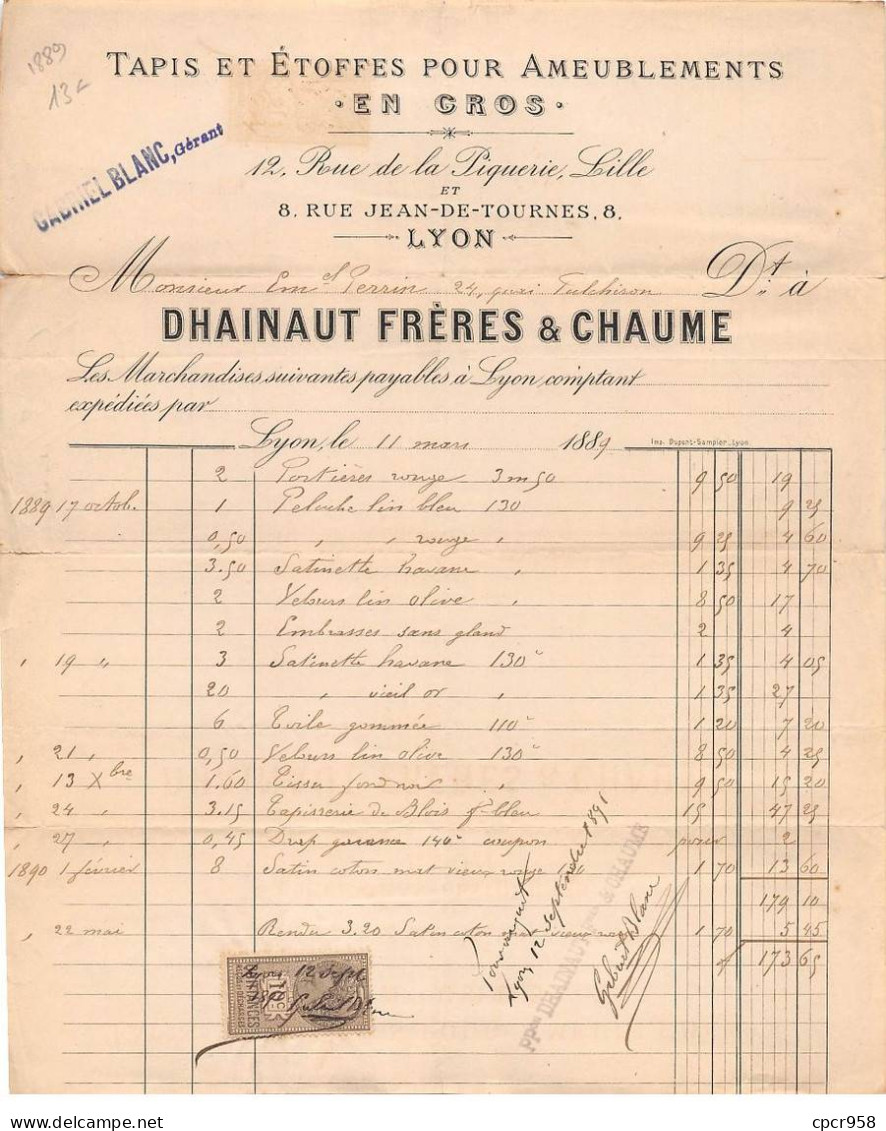 1889
13
TAPIS ET ÉTOFFES POUR AMEUBLEMENTS
EN GROS
GABRIEL BLANC, Gérant
12, Rue de la Piquerie, Lille
ET
8, RUE JEAN-DE-TOURNES, 8,
LYON
Monsieur Em.el Perrin 24, quai Fulchiron Dt. à
DHAINAUT FRÈRES & CHAUME
Les Marchandises suivantes payables à Lyon, comptant
expédiées par
Lyon, le 11 mars 1889 Imp. Duport-Sampier, Lyon.
2 Portières rouge 3 m 50 9 50 19
1889 17 octob. 1 Peluche lin bleu 130 9 25
0,50 " " rouge " 9 25 4 60
3.50 Satinette havane " 1 35 4 70
2 Velours lin olive " 8 50 17
2 Embrasses sans gland 2 4
" 19 " 3 Satinette havane 130c 1 35 4 05
20 " vieil or " 1 35 27
6 Toile gommée 110c 1 20 7 20
" 21 " 0,50 Velours lin olive 130c 8 50 4 25
" 13 Xbre 1.60 Tissu fond noir 9 50 15 20
" 24 " 3.15 Tapisserie de Blois f. bleu 15 47 25
" 27 " 0,45 Drap garance 140c coupon pour 2
1890 1 février 8 Satin coton mat vieux rouge 130 1 70 13 60
179 10
" 22 mai Rendu 3.20 Satin coton mat vieux 1 70 5 45
173 65
Pour acquit
Lyon, 12 Septembre 1891
PPon DHAINAUT Fres & CHAUME
Gabriel Blanc
Lyon 12 Sept
QUITTANCES
Gabriel Blanc
cpcr958